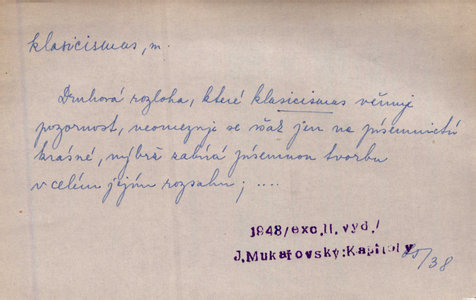 klasicismus, m.
Druhová rozloha, které klasicismus věnuje
pozornost, neomezuje se však jen na písemnictví
krásné, nýbrž zabírá písemnou tvorbu
v celém jejím rozsahu; ....
1948/exc.II.vyd./
J.Mukařovský:Kapitoly
/38